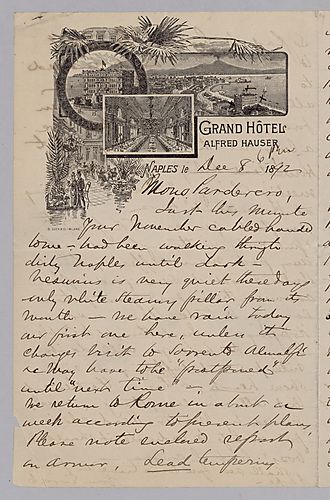 GRAND HÔTEL
ALFRED HAUSER
NAPLES le Dec 8 6 pm 1892
Just this minute
Your November cabled handed
to me - had been walking through
dirty Naples until dark -
Vesuvius is very quiet these days
only white steaming pillar from its
mouth - we have rain today
our first one here, unless it
changes visit to Sorrento Amalfi
may have to be "postponed"
until "next time" -
we return to Rome in about a
week according to present plans
Please note enclosed report
on armor, Lead tempering